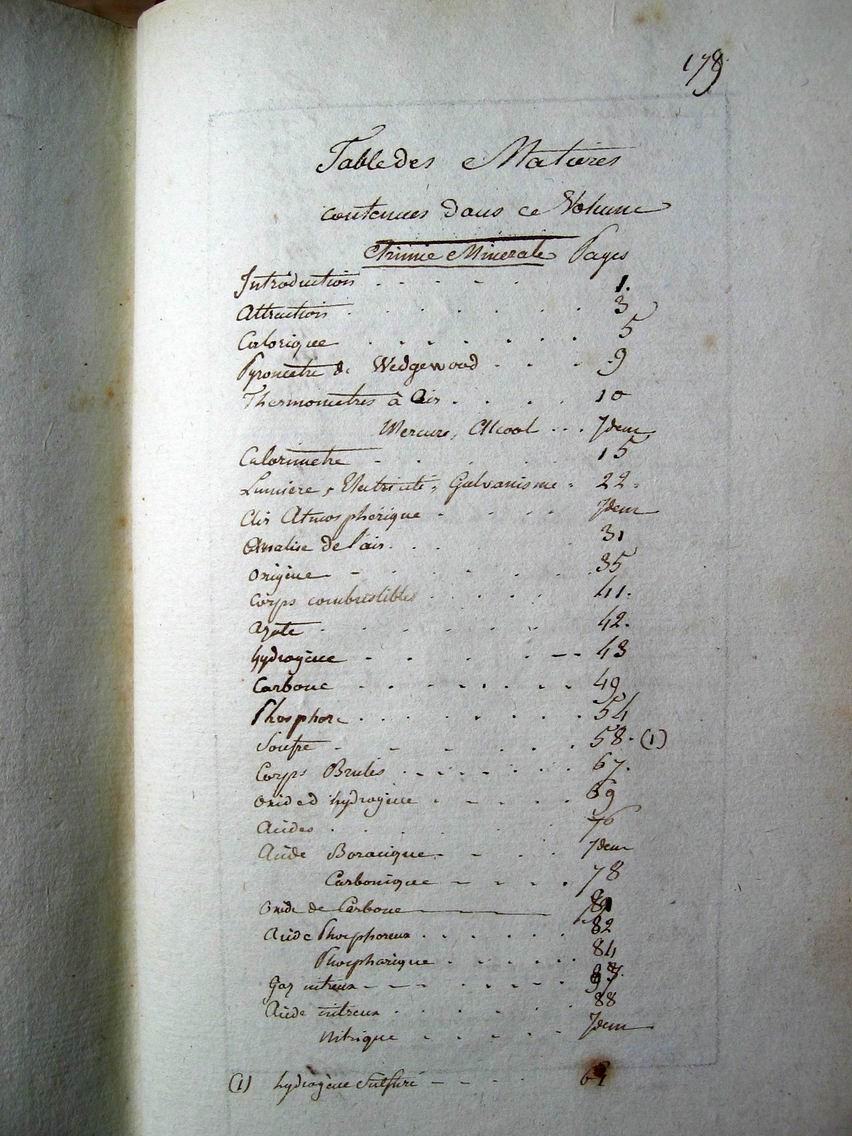 179
Table des Matieres
contenues dans ce Volume
Chimie Minerale Pages
Introduction 1.
Attraction 3
Calorique 5
Pyrometre de Wedgewood 9
Thermometres à Air 10
Mercure, Alcool Idem
Calorimetre 15
Lumiere, Electricité, Galvanisme 22
Air Atmosphérique Idem
Analise de l'air 31
Origine 35
Corps combustibles 41.
Azote 42.
hydrogène 43
Carbone 49
Phosphore 54
Soufre 58. (1)
Corps Brulés 67.
Oxide d'hydrogène 69
Acides 76
Acide Boracique Idem
Carbonique 78
Oxide de Carbone
Acide Phosphoreux 82
Phosphorique 84
Gaz nitreux
Acide nitreux 88
Nitrique Idem
(1) hydrogène Sulfuré